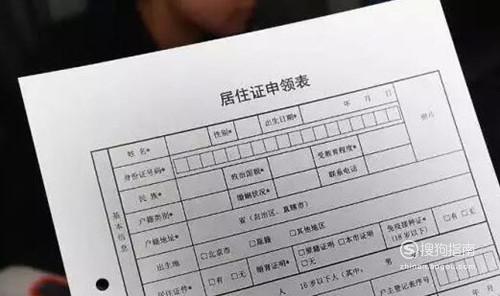 居住证申领表
姓名* 性别* 出生日期* 年 月 日
身份证号码* 照片
民族* 政治面貌* 受教育程度*
户籍类别* 婚姻状况* 联系电话
户籍地址* 省(自治区、直辖市)
出生地 □北京市 □原籍 □其他地区
居住证件* □有 □无 婚育证明* □原籍证明 □本市证明 免疫接种证* (18岁以下) □有 □无
人 16岁以下人(其中: 男 户主登记表序号
基本信息
搜狗指南
zhinan.sogou.com